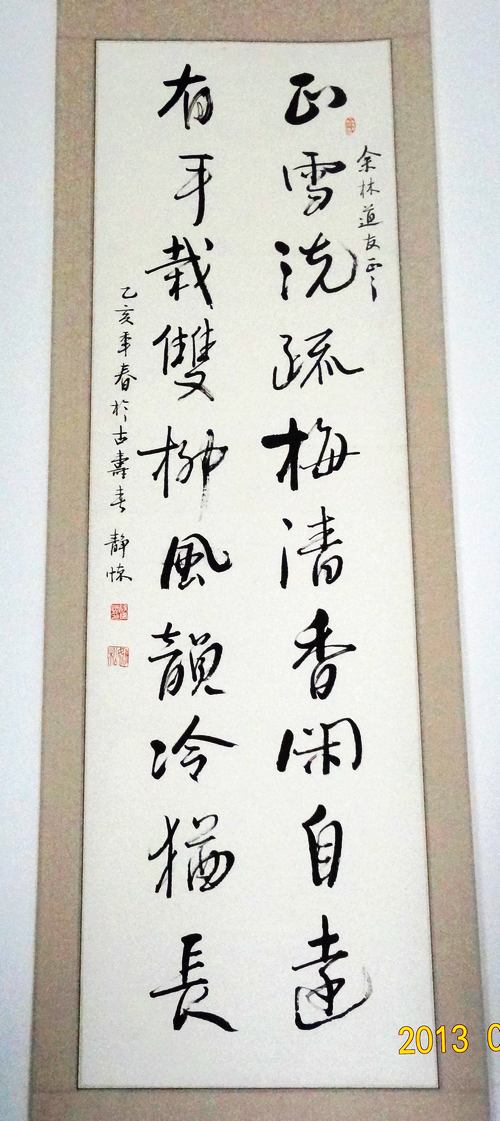 余林道友正之
正雪洗疏梅清香閑自遠
有手栽雙柳風韻冷猶長
乙亥年春於古壽春 靜
2013 0